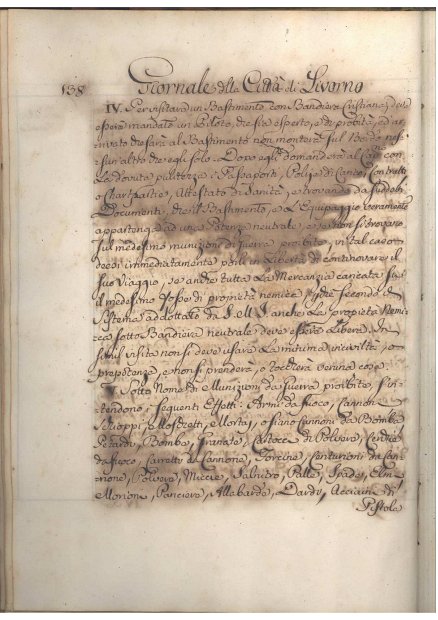 138 Giornale della Città di Livorno
IV. Per visitare un Bastimento con Bandiera Cristiana, deve
essere mandato un Piloto, che sia esperto, e di probità, ed ar-
rivato che sarà al Bastimento non monterà sul Bordo nes-
sun altro che egli solo. Dopo egli domanderà al con
la dovuta pulitezza i Passaporti, Polize di Carico, Contratti
o Chartpartie, Attestato di Sanità, e trovando da suddetti
Documenti, che il Bastimento, e l'Equipaggio veramente
appartenga ad una Potenza neutrale, e non si trovano
sul medesimo munizioni di guerra proibite, in tal caso
deesi immediatamente porlo in libertà di continovare il
suo Viaggio, se anche tutta la Mercanzia caricata sul
il medesimo fosse di proprietà nemica, secondo il
Sistema adottato da S.M.I. anche la propietà Nemi-
ca sotto Bandiera neutrale deve essere libera. In
visita non si deve usare la minima inciviltà, o
prepotenza, e non si prenderà, o toccherà veruna cosa.
V. Sotto Nome di Munizioni da Guerra proibite, s'in-
tendono i seguenti Effetti: Armi da fuoco, Cannoni
Schioppi, e Moschetti, Mortaj, o siano Cannoni da Bombe
Petardi, Bombe, Granate, di Polvere,
da fuoco, Carrette al Cannone, Forcine, Centurioni da Can-
none, Polvere, Miccie, Salnitro, Palle, Spade, Elmi
Morioni, Panciere, Allabarde, Dardi, Acciarini di
Pistole